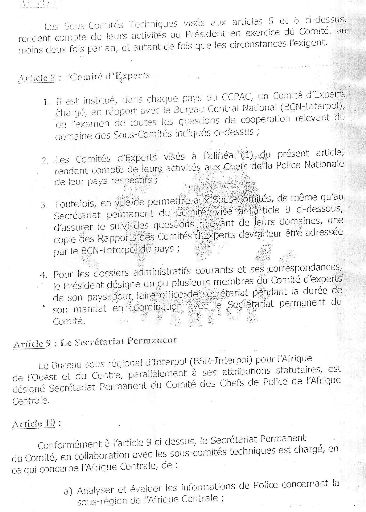 Les Sous-Comités Techniques visés aux articles 5 et 6 ci-dessus,
rendent compte de leurs activités au Président en exercice du Comité, au
moins deux fois par an, et autant de fois que les circonstances l'exigent.
Article 8 : Comité d'Experts
1. Il est institué, dans chaque pays du CCPAC, un Comité d'Experts
chargé, en rapport avec le Bureau Central National (BCN-Interpol),
de l'examen de toutes les questions de coopération relevant du
domaine des Sous-Comités indiqués ci-dessus ;
2. Les Comités d'Experts visés à l'alinéa (1) du présent article,
rendent compte de leurs activités aux Chefs de la Police Nationale
de leur pays respectifs ;
3. Toutefois, en vue de permettre aux Sous-Comités, de même qu'au
Secrétariat permanent du Comité visé à l'article 9 ci-dessous,
d'assurer le suivi des questions relevant de leurs domaines, une
copie des Rapports des Comités d'Experts devra leur être adressée
par le BCN-Interpol du pays ;
4. Pour les dossiers administratifs courants et ses correspondances,
le Président désigne un ou plusieurs membres du Comité d'experts
de son pays pour faire office de secrétariat pendant la durée de
son mandat en le Secrétariat permanent du
Comité.
Article 9 : Le Secrétariat Permanent
Le Bureau sous-régional d'Interpol (BSR-Interpol) pour l'Afrique
de l'Ouest et du Centre, parallèlement à ses attributions statutaires, est
désigné Secrétariat Permanent du Comité des Chefs de Police de l'Afrique
Centrale.
Article 10 :
Conformément à l'article 9 ci-dessus, le Secrétariat Permanent
du Comité, en collaboration avec les sous-comités techniques est chargé, en
ce qui concerne l'Afrique Centrale, de :
a) Analyser et évaluer les informations de Police concernant la
sous-région de l'Afrique Centrale ;